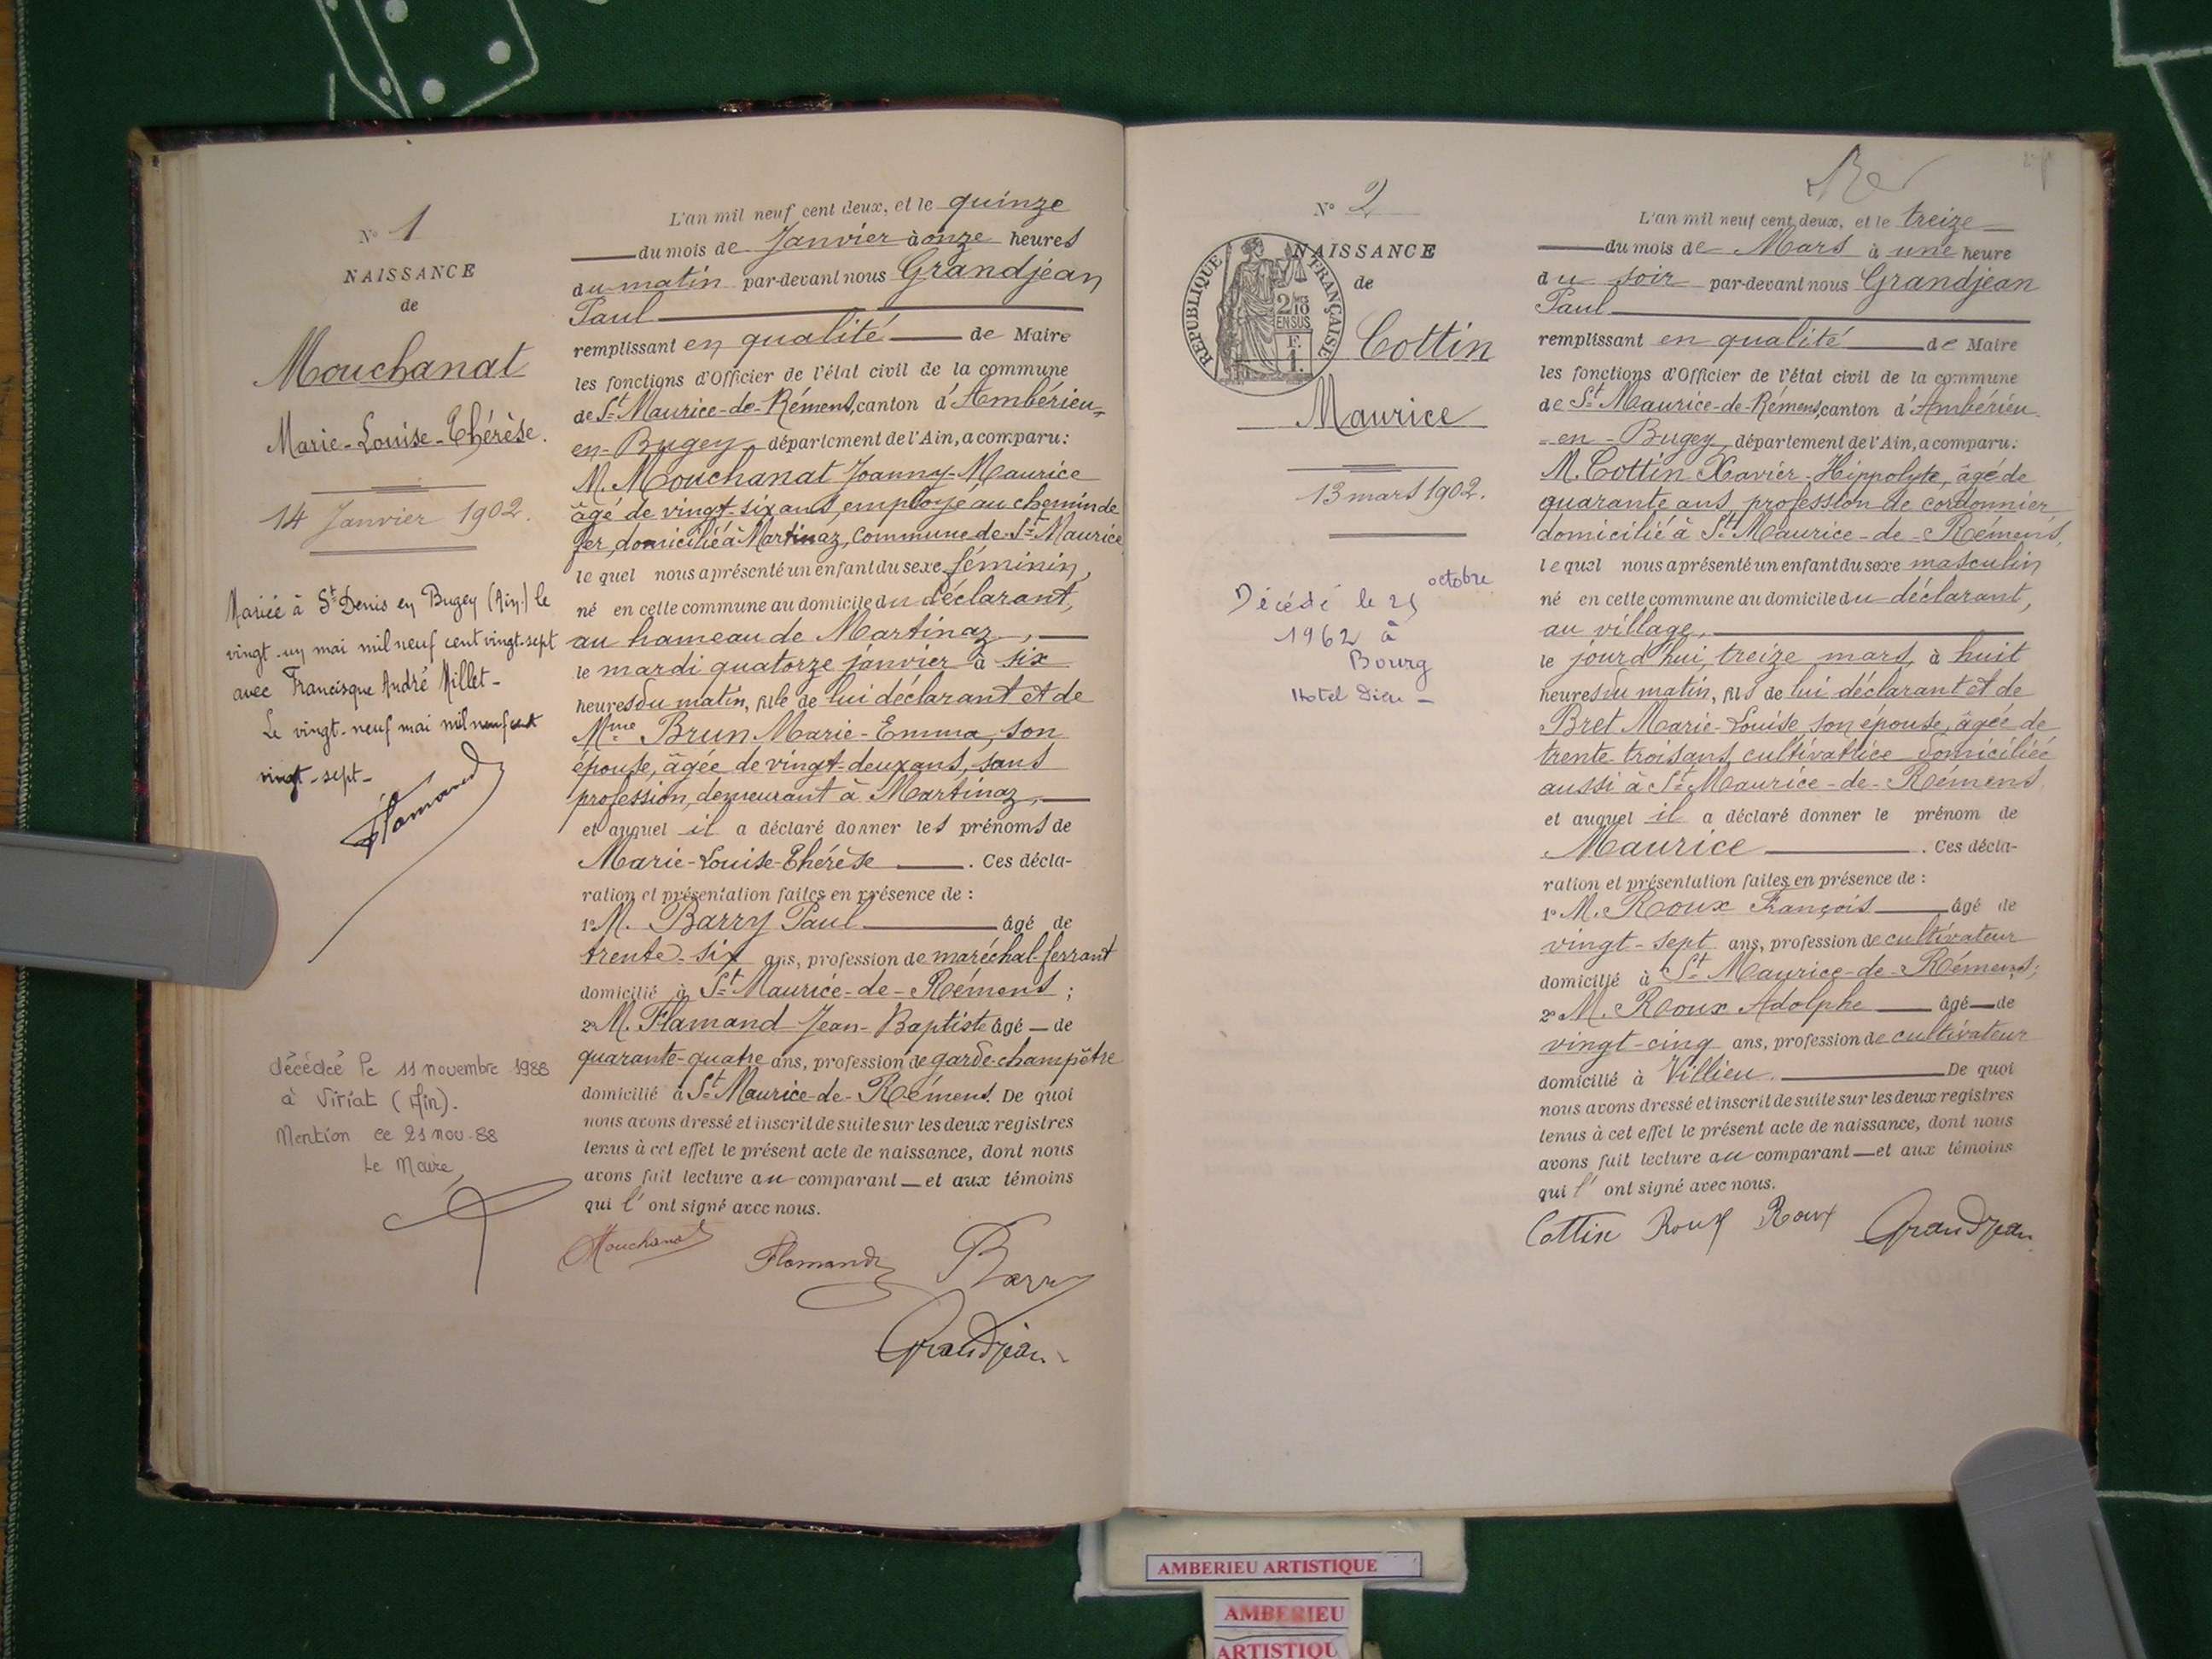 N° 1
NAISSANCE
de
Mouchanat
Marie-Louise-Thérèse.
14 Janvier 1902.
Mariée à St Denis en Bugey (Ain) le
vingt-un mai mil neuf cent vingt-sept
avec Francisque André Millet-
Le vingt-neuf mai mil neuf cent
vingt-sept-
Flamand
décédée le 11 novembre 1988
à Viriat (Ain).
Mention ce 21 nov-88
Le Maire,
L'an mil neuf cent deux, et le quinze
du mois de Janvier à onze heures
du matin par-devant nous Grandjean
Paul
remplissant en qualité de Maire
les fonctions d'Officier de l'état civil de la commune
de St Maurice-de-Rémens, canton d'Ambérieu-
en-Bugey, département de l'Ain, a comparu:
M. Mouchanat Joanny-Maurice
âgé de vingt-six ans, employé au chemin de
fer, domicilié à Martinaz, commune de St Maurice
le quel nous a présenté un enfant du sexe féminin,
né en cette commune au domicile du déclarant,
au hameau de Martinaz,
le mardi quatorze janvier à six
heures du matin, fille de lui déclarant et de
Mme Brun Marie-Emma, son
épouse, âgée de vingt-deux ans, sans
profession, demeurant à Martinaz,
et auquel il a déclaré donner les prénoms de
Marie-Louise-Thérèse. Ces décla-
ration et présentation faites en présence de :
1° M. Barry Paul âgé de
trente-six ans, profession de maréchal-ferrant
domicilié à St Maurice-de-Rémens ;
2° M. Flamand Jean-Baptiste âgé de
quarante-quatre ans, profession de garde-champêtre
domicilié à St Maurice-de-Rémens. De quoi
nous avons dressé et inscrit de suite sur les deux registres
tenus à cet effet le présent acte de naissance, dont nous
avons fait lecture au comparant et aux témoins
qui l'ont signé avec nous.
Mouchanat Flamand Barry
Grandjean
N° 2
NAISSANCE
de
REPUBLIQUE FRANÇAISE
2/10
EN SUS
F.
1.
Cottin
Maurice
13 mars 1902.
Décédé le 25 octobre
1962 à
Bourg
Hotel Dieu -
L'an mil neuf cent deux, et le treize
du mois de Mars à une heure
du soir par-devant nous Grandjean
Paul
remplissant en qualité de Maire
les fonctions d'Officier de l'état civil de la commune
de St Maurice-de-Rémens, canton d'Ambérieu
-en-Bugey, département de l'Ain, a comparu:
M. Cottin Xavier-Hippolyte, âgé de
quarante ans, profession de cordonnier
domicilié à St Maurice-de-Rémens,
le quel nous a présenté un enfant du sexe masculin
né en cette commune au domicile du déclarant,
au village,
le jourd'hui, treize mars, à huit
heures du matin, fils de lui déclarant et de
Bret Marie-Louise, son épouse, âgée de
trente-trois ans, cultivatrice domiciliée
aussi à St Maurice-de-Rémens
et auquel il a déclaré donner le prénom de
Maurice. Ces décla-
ration et présentation faites en présence de :
1° M. Roux François âgé de
vingt-sept ans, profession de cultivateur
domicilié à St Maurice-de-Rémens;
2° M. Roux Adolphe âgé de
vingt-cinq ans, profession de cultivateur
domicilié à Villieu. De quoi
nous avons dressé et inscrit de suite sur les deux registres
tenus à cet effet le présent acte de naissance, dont nous
avons fait lecture au comparant et aux témoins
qui l'ont signé avec nous.
Cottin Roux Roux Grandjean
AMBERIEU ARTISTIQUE
AMBERIEU
ARTISTIQU